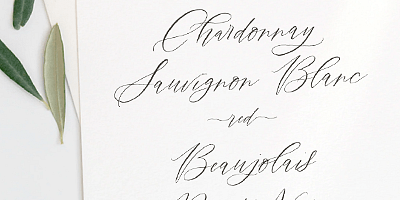 Chardonnay
Sauvignon Blanc
~red~
Beaujolais